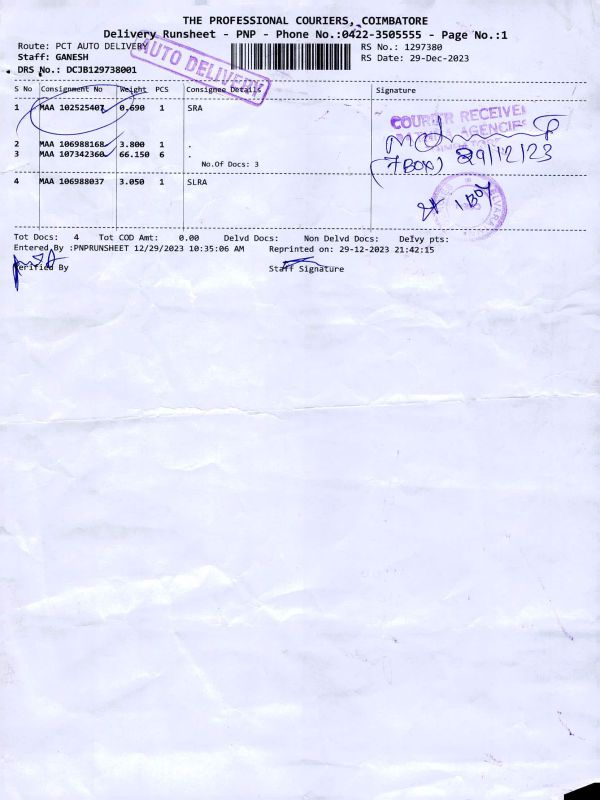 THE PROFESSIONAL COURIERS, COIMBATORE
Delivery Runsheet - PNP - Phone No.:0422-3505555 - Page No.:1
Route: PCT AUTO DELIVERY RS No.: 1297380
Staff: GANESH RS Date: 29-Dec-2023
DRS No.: DCJB129738001
AUTO DELIVERY
S No Consignment No Weight PCS Consignee Details Signature
1 MAA 102525407 0.690 1 SRA
COURIER RECEIVED
AGENCIES
2 MAA 106988168 3.800 1 .
3 MAA 107342360 66.150 6 .
(7 BOX) 29/12/23
No.Of Docs: 3
4 MAA 106988037 3.050 1 SLRA
1 BOX
Tot Docs: 4 Tot COD Amt: 0.00 Delvd Docs: Non Delvd Docs: Delvy pts:
Entered By :PNPRUNSHEET 12/29/2023 10:35:06 AM Reprinted on: 29-12-2023 21:42:15
Verified By Staff Signature